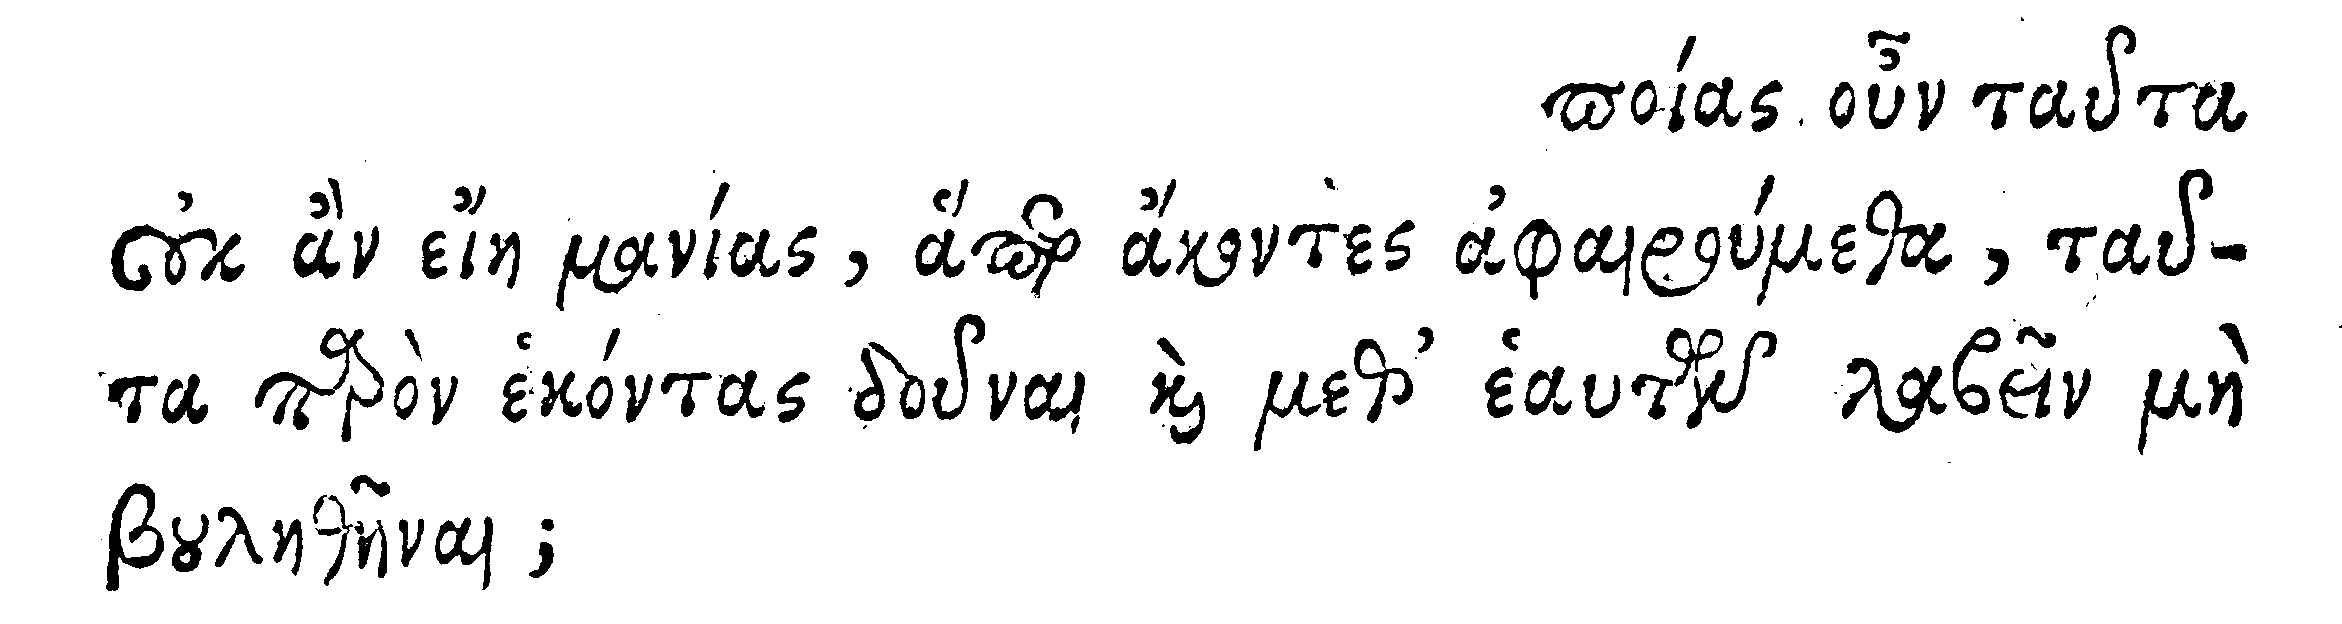 ποίας οὖν ταῦτα
οὐκ ἂν εἴη μανίας, ἅπερ ἄκοντες ἀφαιρούμεθα, ταῦ-
τα παρὸν ἑκόντας δοῦναι καὶ μεθ’ ἑαυτῶν λαβεῖν μὴ
βουληθῆναι;